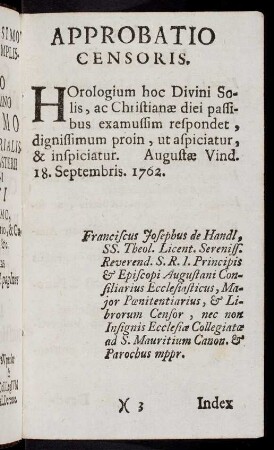 APPROBATIO
CENSORIS.
HOrologium hoc Divini So-
lis, ac Christianæ diei passi-
bus examussim respondet,
dignissimum proin, ut aspiciatur,
& inspiciatur. Augustæ Vind.
18. Septembris. 1762.
Franciscus Josephus de Handl,
SS. Theol. Licent. Sereniss.
Reverend. S. R. I. Principis
& Episcopi Augustani Con-
siliarius Ecclesiasticus, Ma-
jor Pœnitentiarius, & Li-
brorum Censor, nec non
Insignis Ecclesiæ Collegiatæ
ad S. Mauritium Canon. &
Parochus mppr.
)( 3 Index